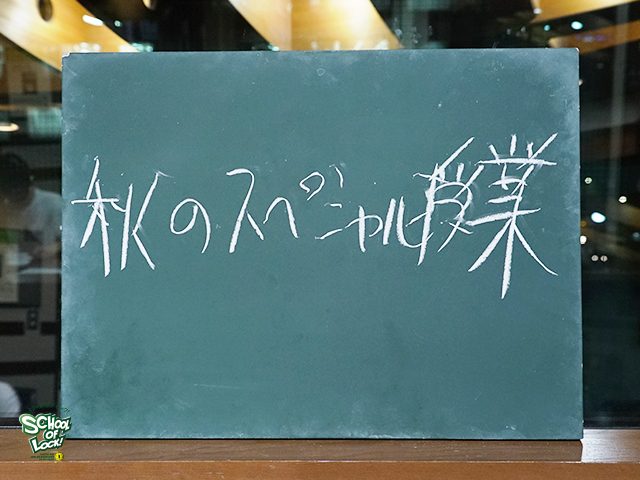 秋のスペシャル授業
SCHOOL
OF
LOCK!